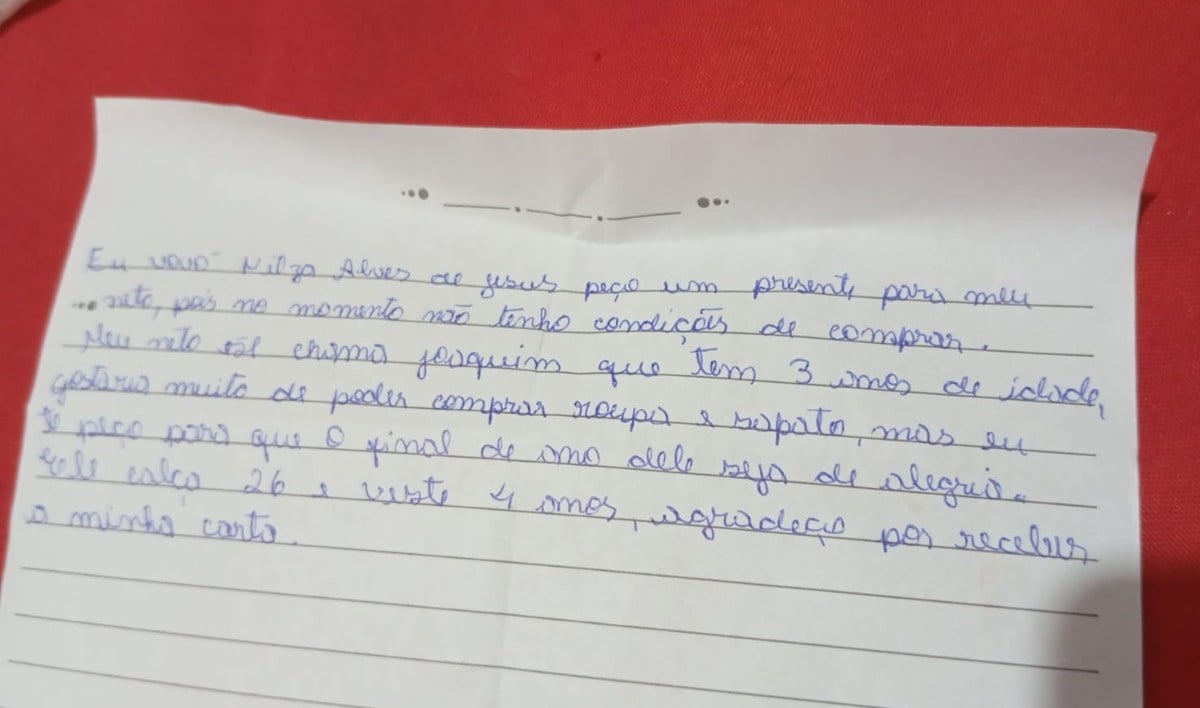 Eu vovó Nilza Alves de jesus peço um presente para meu
neto, pois no momento não tenho condições de comprar.
Meu neto se chama joaquim que tem 3 anos de idade,
gostaria muito de poder comprar roupa e sapato, mas eu
te peço para que o final de ano dele seja de alegria.
ele calça 26 e veste 4 anos, agradeço por receber
a minha carta.